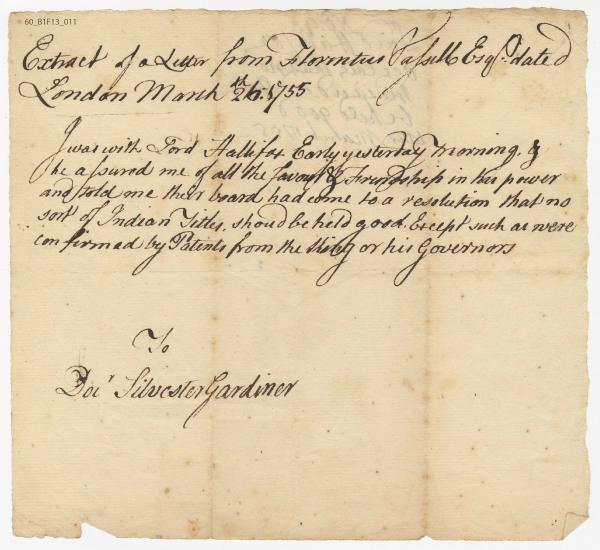 60_B1F13_011
Extract of a Letter from Florentius Vassell Esqr. dated
London March 26th. 1755
I was with Lord Hallifax Early yesterday morning, &
he assured me of all the favour & Friendship in his power
and told me their board had come to a resolution that no
sort of Indian Titles, should be held good. Except such as were
confirmed by Patents from the King or his Governors
To
Docr Silvester Gardiner